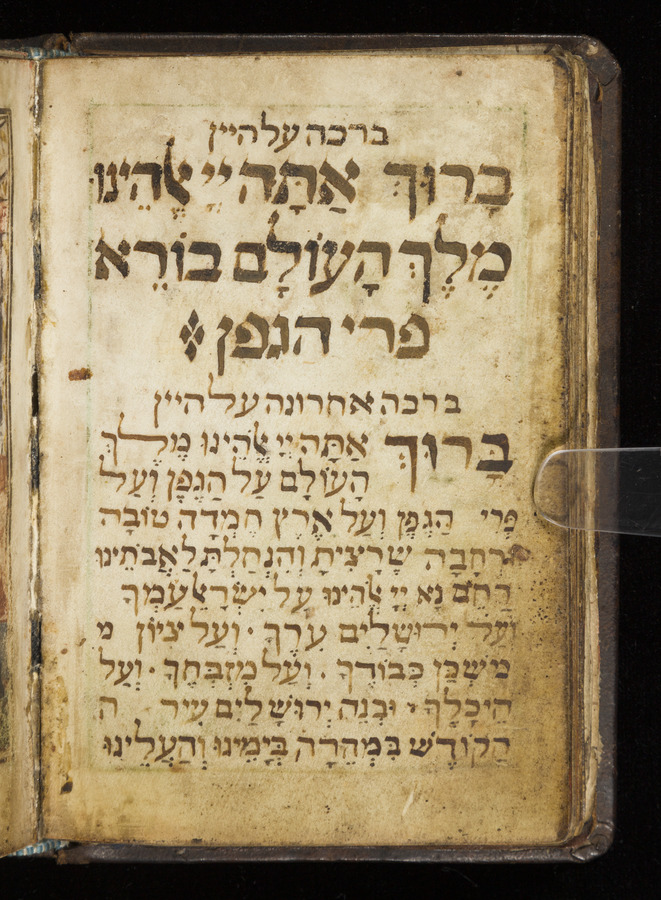 ברכה על היין
בָרוּךְ אַתָּה יְיָ אֱלֹהֵינוּ
מֶלֶךְ הָעוֹלָם בוֹרֵא
פרי הגפן
ברכה אחרונה על היין
בָּרוּךְ אַתָּה יְיָ אֱלֹהֵינוּ מֶלֶךְ
הָעוֹלָם עַל הַגֶפֶן וְעַל
פְּרִי הַגֶפֶן וְעַל אֶרֶץ חֶמְדָה טוֹבָה
וּרְחָבָה שֶׁרָצִיתָ וְהִנְחַלְתָּ לַאֲבֹתֵינוּ
רַחֵם נָא יְיָ אֱלֹהֵינוּ עַל יִשְׂרָאֵל עַמֶךָ
וְעַל יְרוּשָׁלַיִם עִרֶךָ · וְעַל צִיוֹן מ
מִשְׁכַּן כְּבוֹדֶךָ · וְעַל מִזְבְּחֶךָ · וְעַל
הֵיכָלֶךָ · וּבְנֵה יְרוּשָׁלַיִם עִיר ה
הַקוֹדֶשׁ בִּמְהֵרָה בְּיָמֵינוּ וְהַעֲלֵינוּ